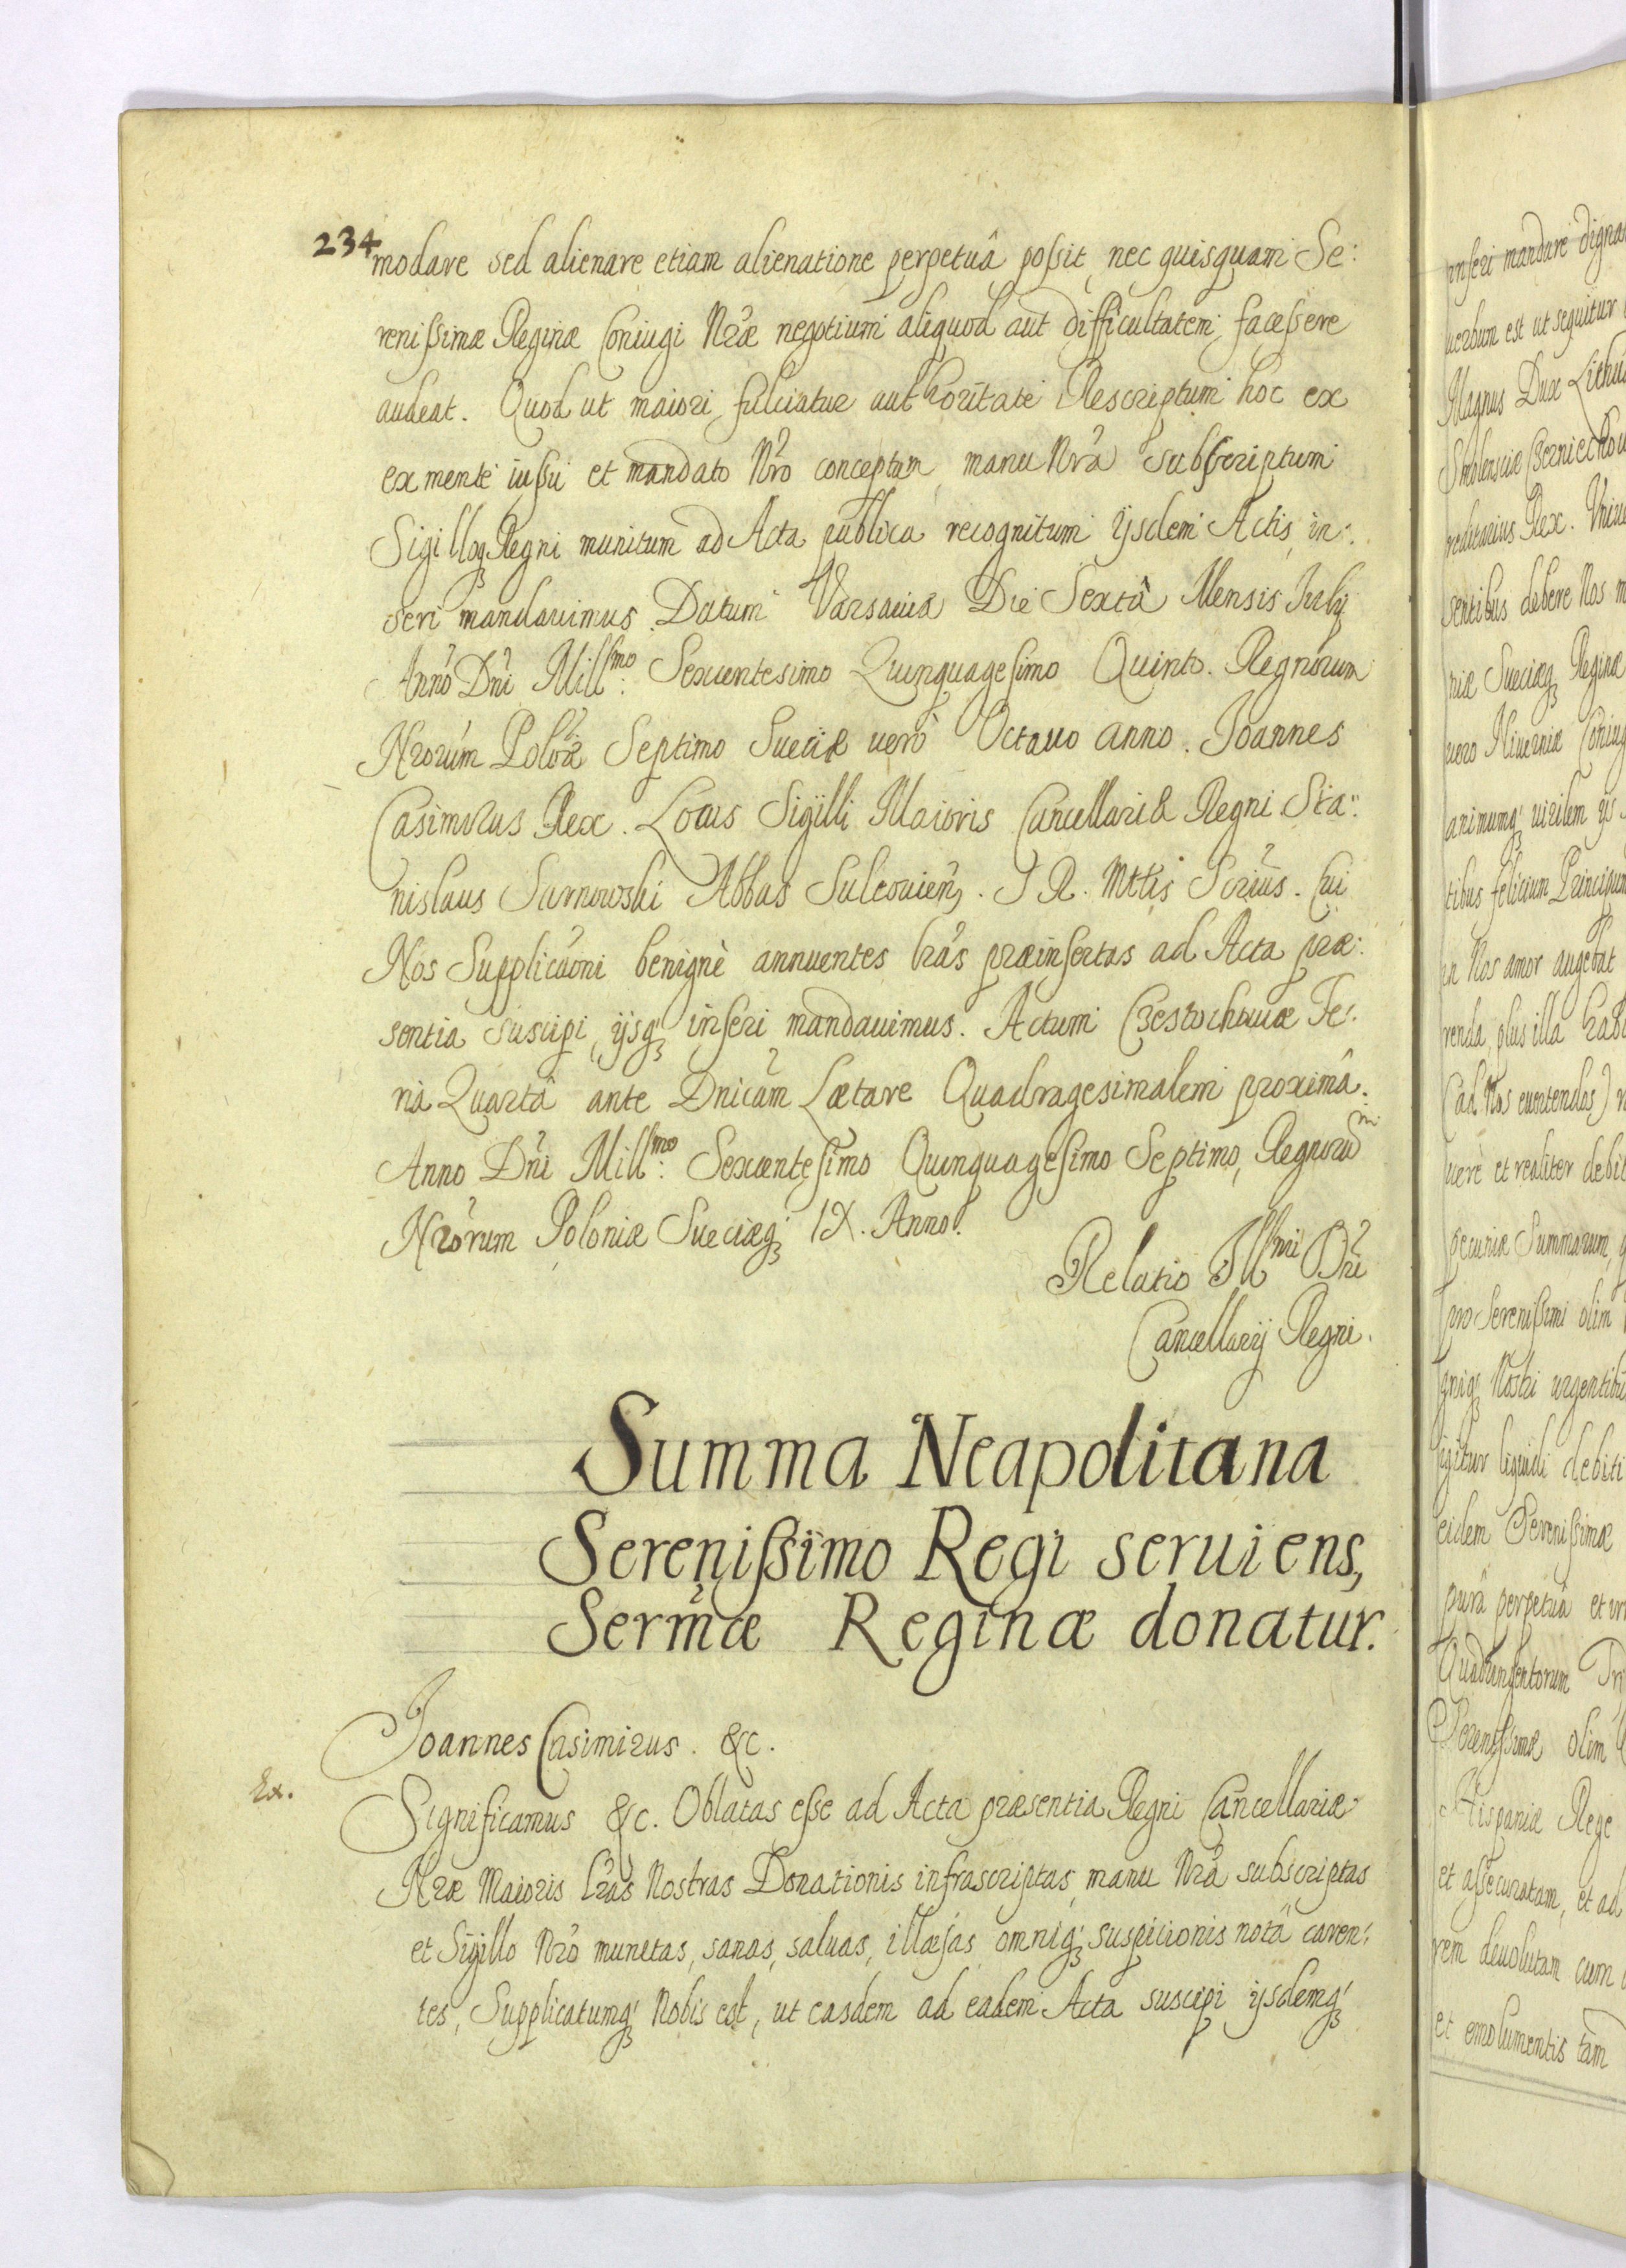 234
modare sed alienare etiam alienatione perpetuâ possit nec quisquam Se:
renissimæ Reginæ Coniugi Nræ negotium aliquod aut difficultatem facessere
audeat. Quod ut maiori fulciatur authoritate Rescriptum hoc ex
ex mente iussu et mandato Nro conceptum, manu Nrâ subscriptum
Sigilloq3 Regni munitum ad Acta publica recognitum ijsdem Actis in:
seri mandauimus. Datum Varsauiæ Die Sextâ Mensis July
Anno Dni Millmo: Sexcentesimo Quinquagesimo Quinto. Regnorum
Nrorum Polõæ Septimo Sueciæ uerò Octauo anno. Joannes
Casimirus Rex. Locus Sigilli Maioris Cancellariæ Regni Sta:
nislaus Sarnowski Abbas Suleouien3. S R. Mttis Scrius. Cui
Nos Supplicaoni benignè annuentes lras præinsertas ad Acta præ:
sentia suscipi, ijsq3 inseri mandauimus. Actum Czestochouiæ Fe:
riâ Quartâ ante Dnicam Lætare Quadragesimalem proximâ.
Anno Dni Millmo: Sexcentesimo Quinquagesimo Septimo, Regnorum
Nrorum Poloniæ Sueciæq3 IX. Anno.
Relatio Illmi Dni
Cancellarij Regni.
Summa Neapolitana
Serenissimo Regi seruiens,
Sermæ Reginæ donatur.
Joannes Casimirus. &c.
Ex.
Significamus &c. Oblatas esse ad Acta præsentia Regni Cancellariæ
Nræ Maioris lras Nostras Donationis infrascriptas, manu Nrâ subscriptas
et Sigillo Nro munitas, sanas, saluas, illæsas, omniq3 suspicionis notâ caren:
tes, Supplicatumq3 Nobis est, ut easdem ad eadem Acta suscipi ijsdemq3
inseri mandare
uerbum est ut sequitur
Magnus Dux
reditarius Rex.
sentibus debere Nos
niæ Sueciæq3 Reginæ
uero Niuerniæ
animumq3 uirilem ijs
tibus felicium Principum
in Nos amor augebat
renda, plus illa
(ad Nos euertendos)
uerè et realiter
pecuniæ Summarum,
pro Serenissimi olim
gniq3 Nostri
igitur liquidi debiti
eidem Serenissimæ
purâ perpetuâ et
Serenissimæ olim
Hispaniæ Rege
et assecuratam, et ad
rem deuolutam cum
et emolumentis tam